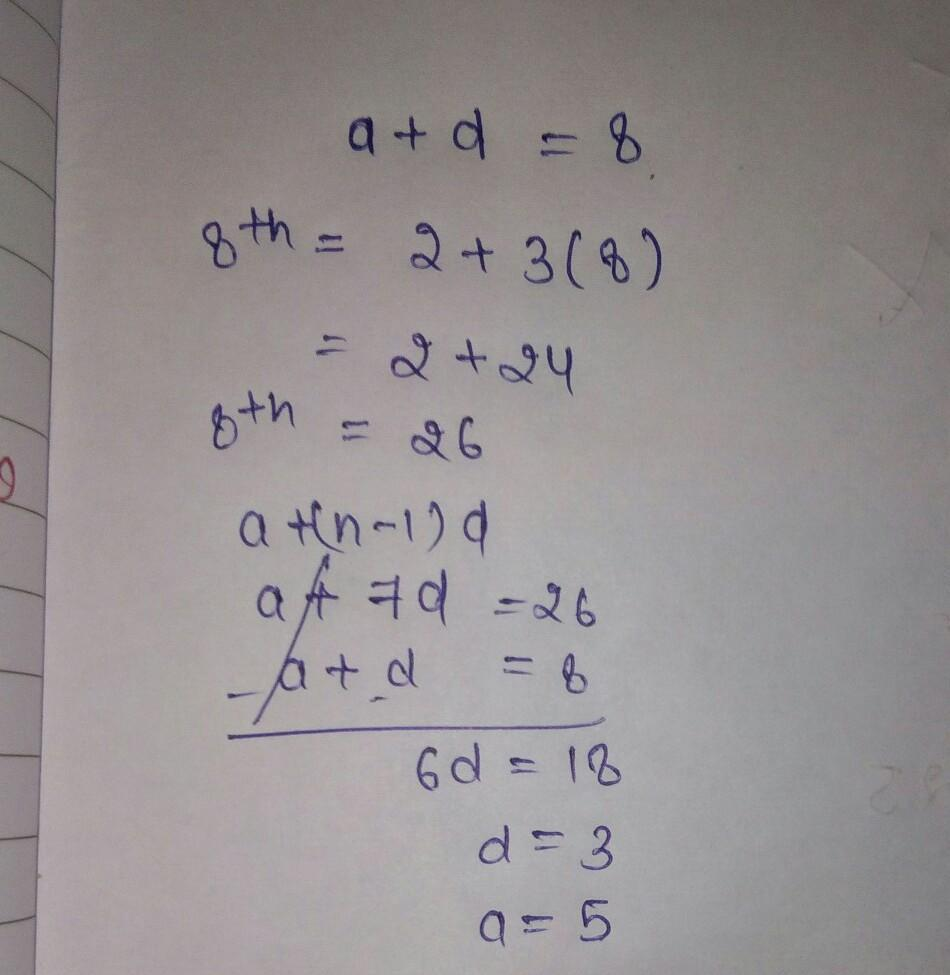 a + d = 8
8th = 2 + 3(8)
= 2 + 24
8th = 26
a +(n-1) d
a + 7d = 26
- a + d = 8
6d = 18
d = 3
a = 5